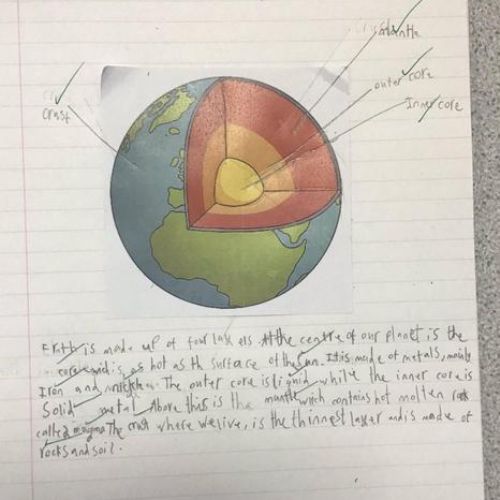 mantle
outer core
Inner core
Crust
Erath is made up of four layers At the centre of our planet is the
core and is as hot as th surface of the sun. It is made of metals, mainly
Iron and. The outer core is liquid while the inner core is
Solid metal. Above this is the mantle which contains hot molten rock
called magma. The crust where we live, is the thinnest layer and is made of
rocks and soil.